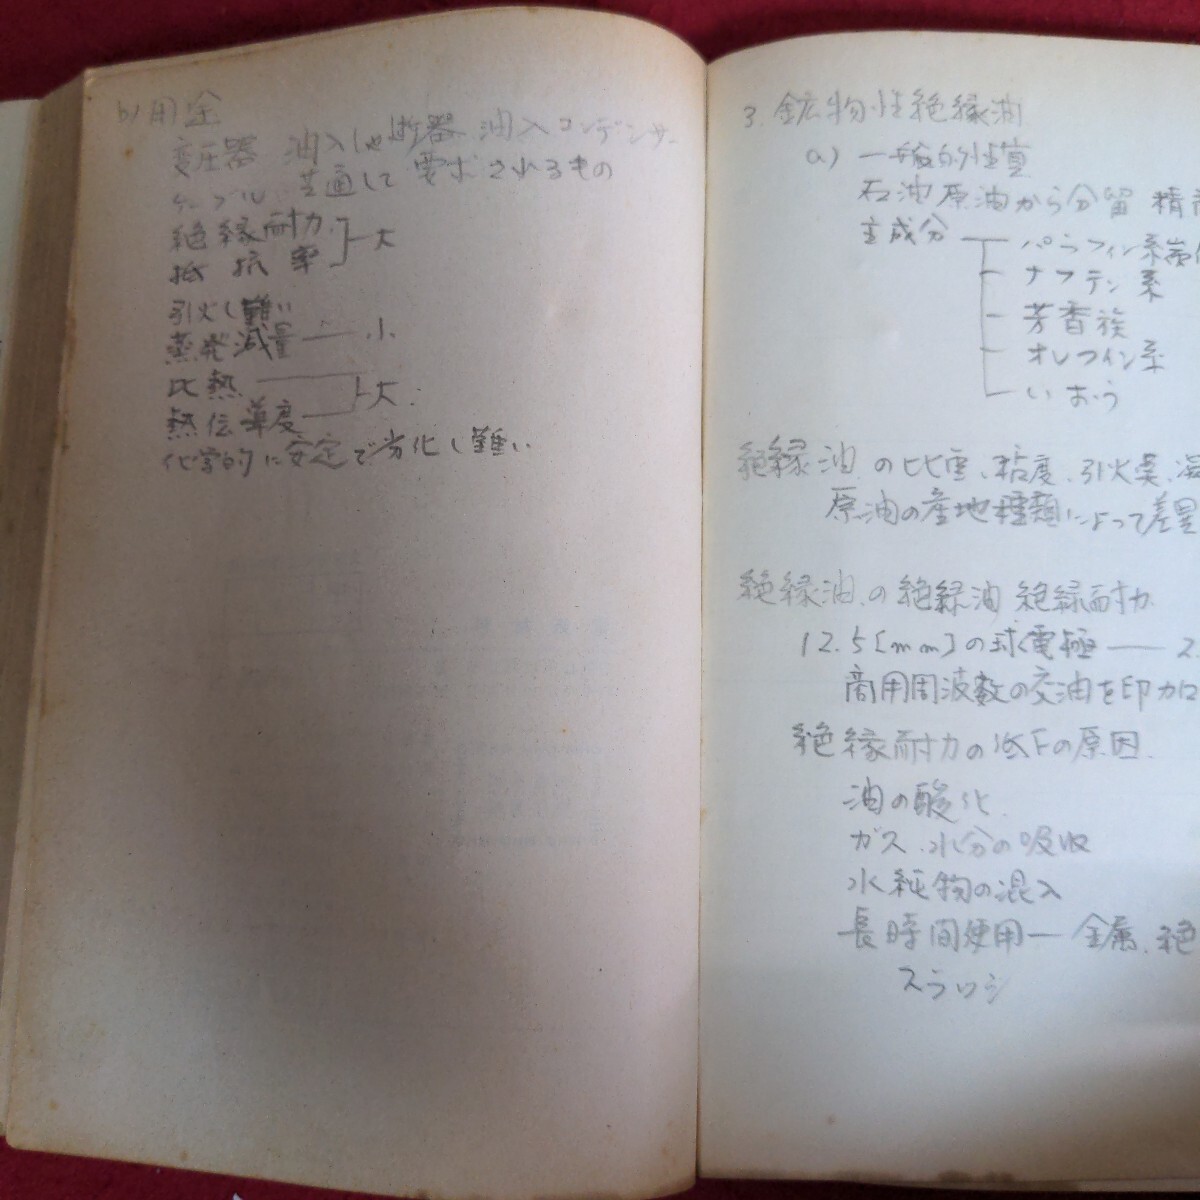 b) 用途
変圧器 油入しゃ断器 油入コンデンサー
ケーブル 共通して要求されるもの
絶縁耐力
抵抗率 大
引火し難い
蒸発減量 — 小
比熱
熱伝導度 大.
化学的に安定で劣化し難い
3. 鉱物性絶縁油
a) 一般的性質
石油原油から分留 精
主成分 パラフィン系炭
ナフテン系
芳香族
オレフィン系
いおう
絶縁油の比重、粘度、引火点、
原油の産地種類によって差異
絶縁油の絶縁油 絶縁耐力
12.5[mm]の球電極 — 2.
商用周波数の交油を印加
絶縁耐力の低下の原因.
油の酸化
ガス、水分の吸収
水純物の混入
長時間使用 — 金属、絶
スラッジ